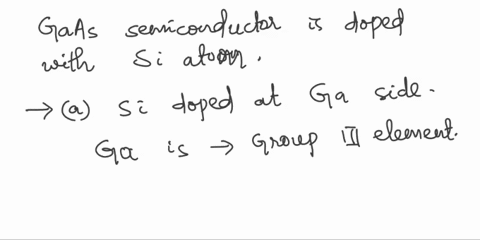 GaAs semiconductor is doped
with Si atom.
→ (a) Si doped at Ga side.
Ga is → Group III element.